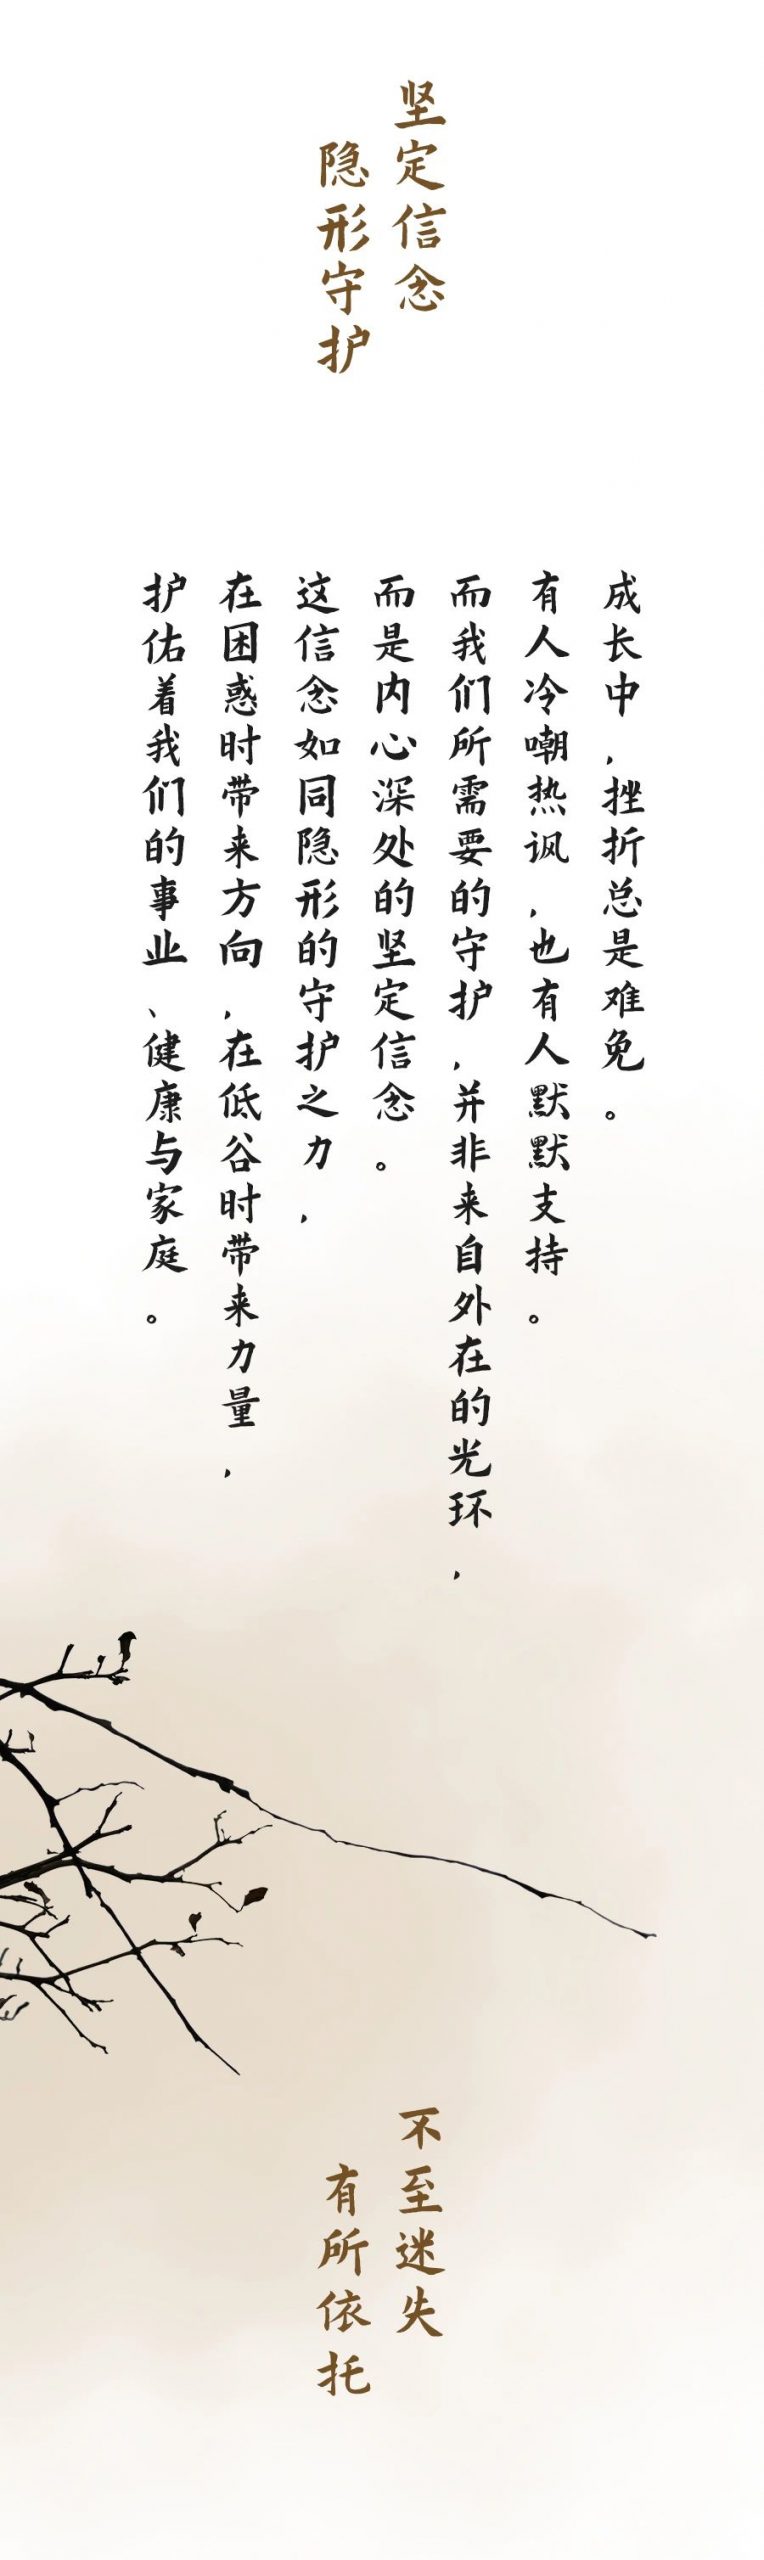 坚定信念
隐形守护
成长中，挫折总是难免。
有人冷嘲热讽，也有人默默支持。
而我们所需要的守护，并非来自外在的光环，
而是内心深处的坚定信念。
这信念如同隐形的守护之力，
在困惑时带来方向，在低谷时带来力量，
护佑着我们的事业、健康与家庭。
不至迷失
有所依托